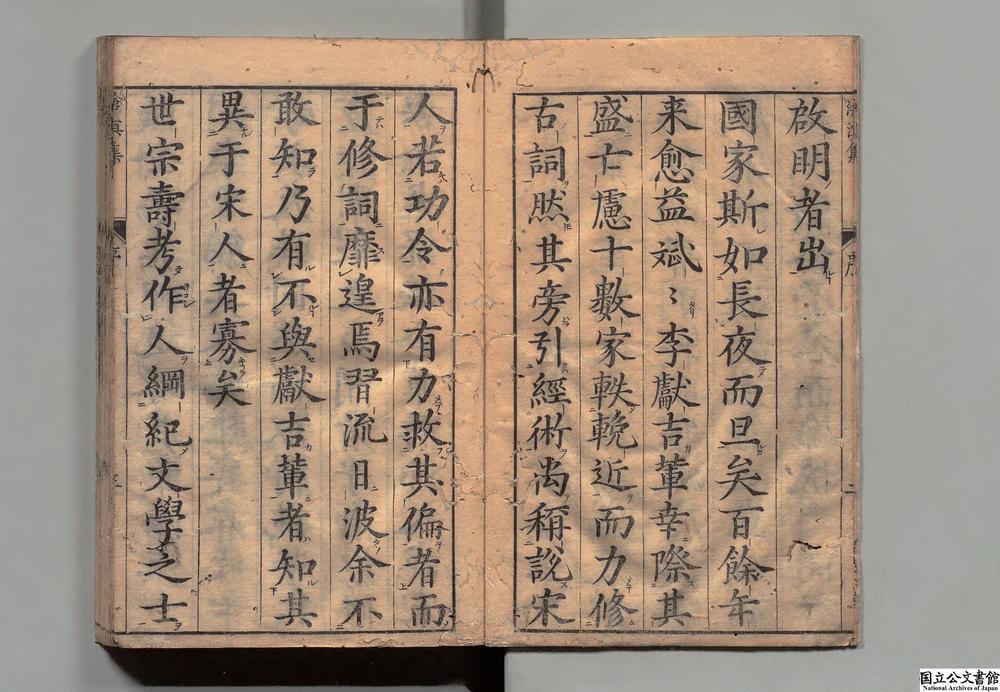 啟明者出
國家斯如長夜而旦矣百餘年
来愈益斌〻李獻吉軰幸際其
盛亡慮十數家軼輓近而力修
古詞然其旁引經術尚稱說宋
人若功令亦有力救其偏者而
于修詞靡遑焉習流日波余不
敢知乃有不與獻吉軰者知其
異于宋人者寡矣
世宗壽考作人綱紀文學之士
滄溟集
序
国立公文書館
National Archives of Japan